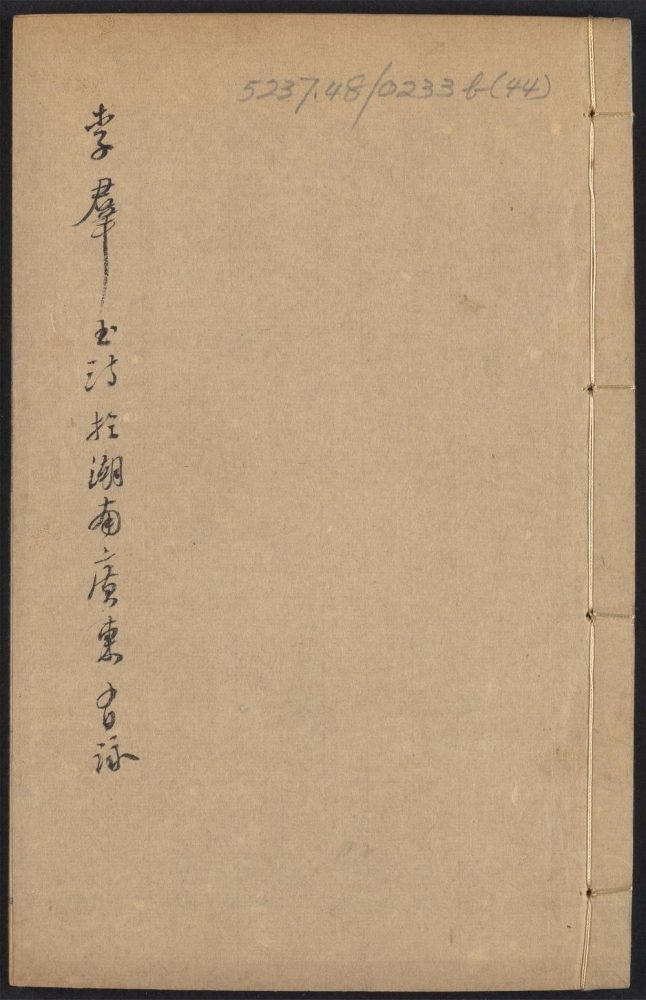 5237.48/0233b(44)
李羣玉詩於湖南廣東有詠